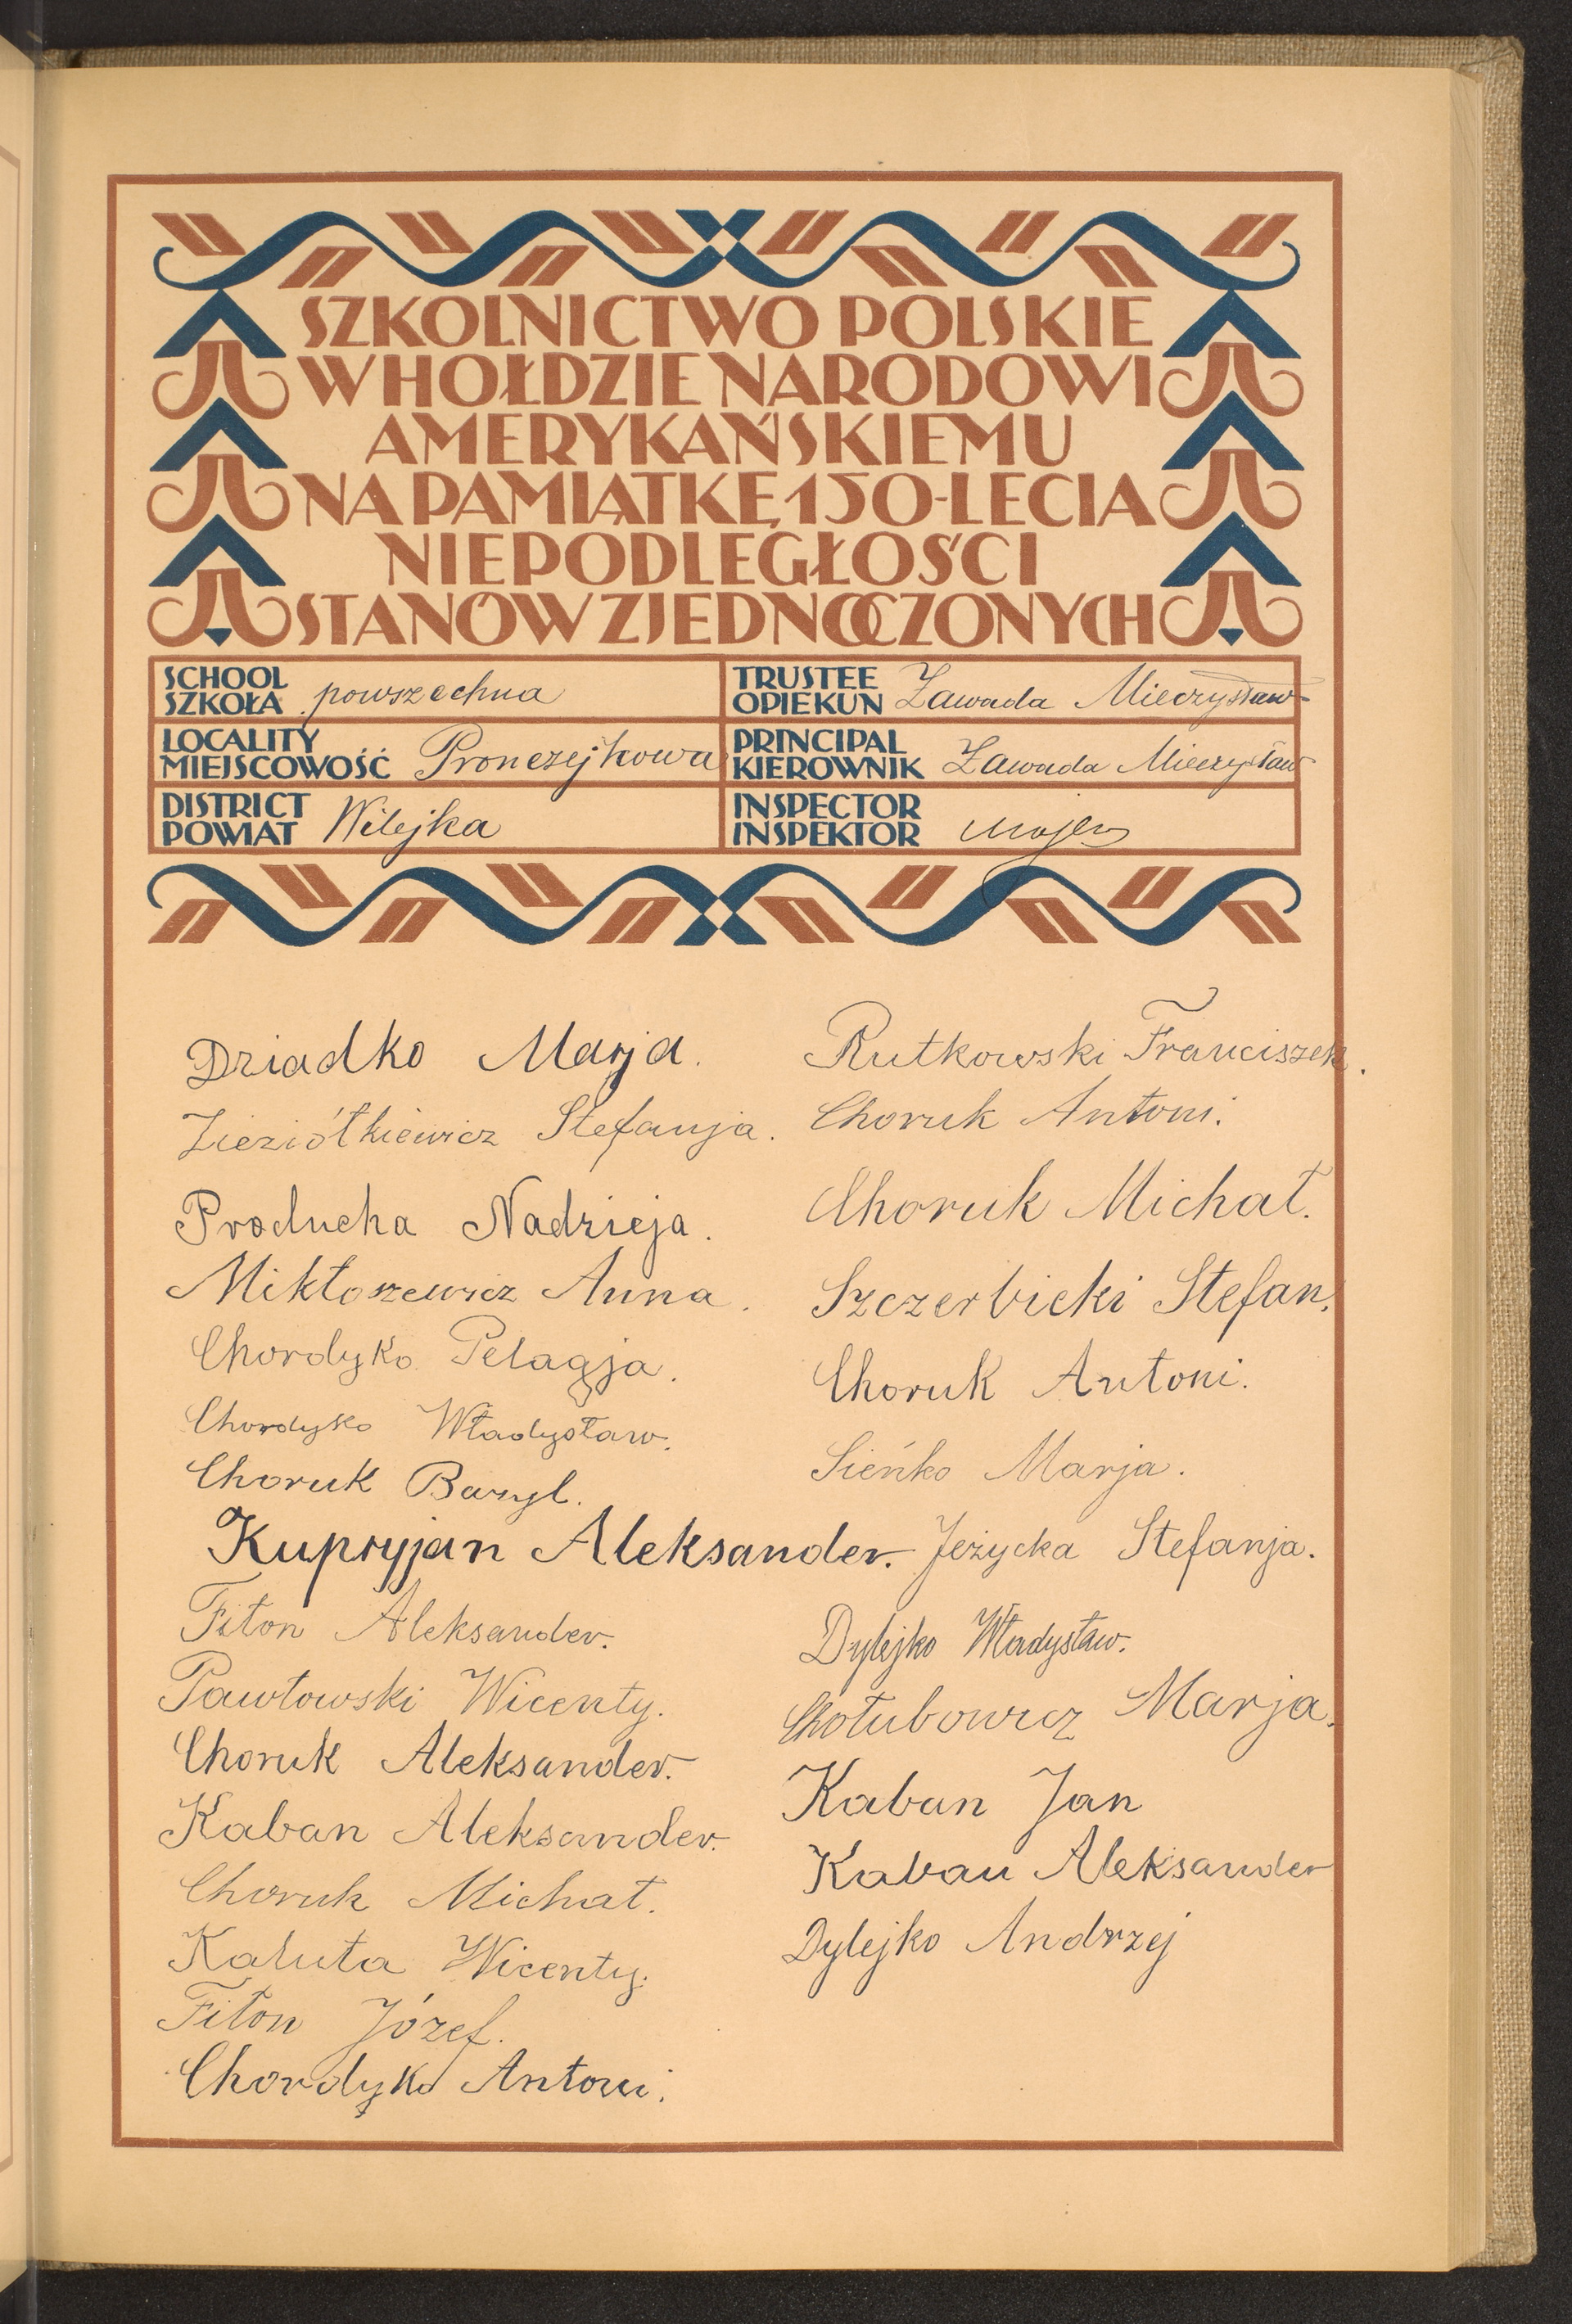 SZKOLNICTWO POLSKIE
W HOŁDZIE NARODOWI
AMERYKAŃSKIEMU
NA PAMIĄTKĘ 150-LECIA
NIEPODLEGŁOŚCI
STANÓW ZJEDNOCZONYCH
SCHOOL
SZKOŁA powszechna
TRUSTEE
OPIEKUN Zawada Mieczysław
LOCALITY
MIEJSCOWOŚĆ Pronczejkowa
PRINCIPAL
KIEROWNIK Zawada Mieczysław
DISTRICT
POWIAT Wilejka
INSPECTOR
INSPEKTOR
Dziadko Marja.
Zieziółkiewicz Stefanja.
Producha Nadzieja.
Mikłoszewicz Anna.
Chordyko Pelagja.
Chordyko Władysław.
Choruk Bazyl.
Kupryjan Aleksander.
Fiton Aleksander.
Pawłowski Wicenty.
Choruk Aleksander.
Kaban Aleksander.
Choruk Michał.
Kałuta Wicenty.
Fiton Józef.
Chordyko Antoni.
Rutkowski Franciszek.
Choruk Antoni.
Choruk Michał.
Szczerbicki Stefan.
Choruk Antoni.
Sieńko Marja.
Jeżycka Stefanja.
Dylejko Władysław.
Chołubowicz Marja.
Kaban Jan
Kaban Aleksander
Dylejko Andrzej